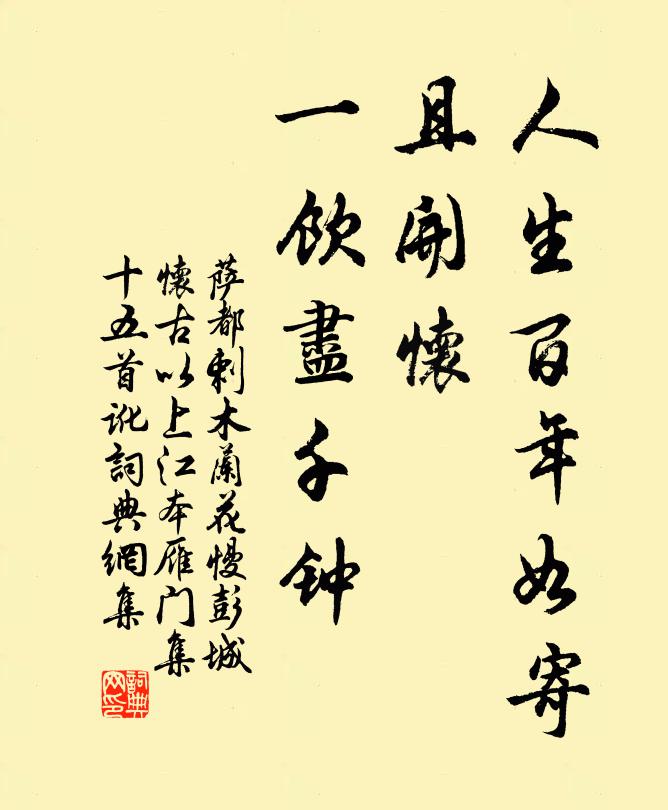 人生百年如寄
且開懷
一飲盡千钟
萨都剌木蘭花慢彭城
懷古以上江本雁门集
十五首讹詞典網集
詞典
网印